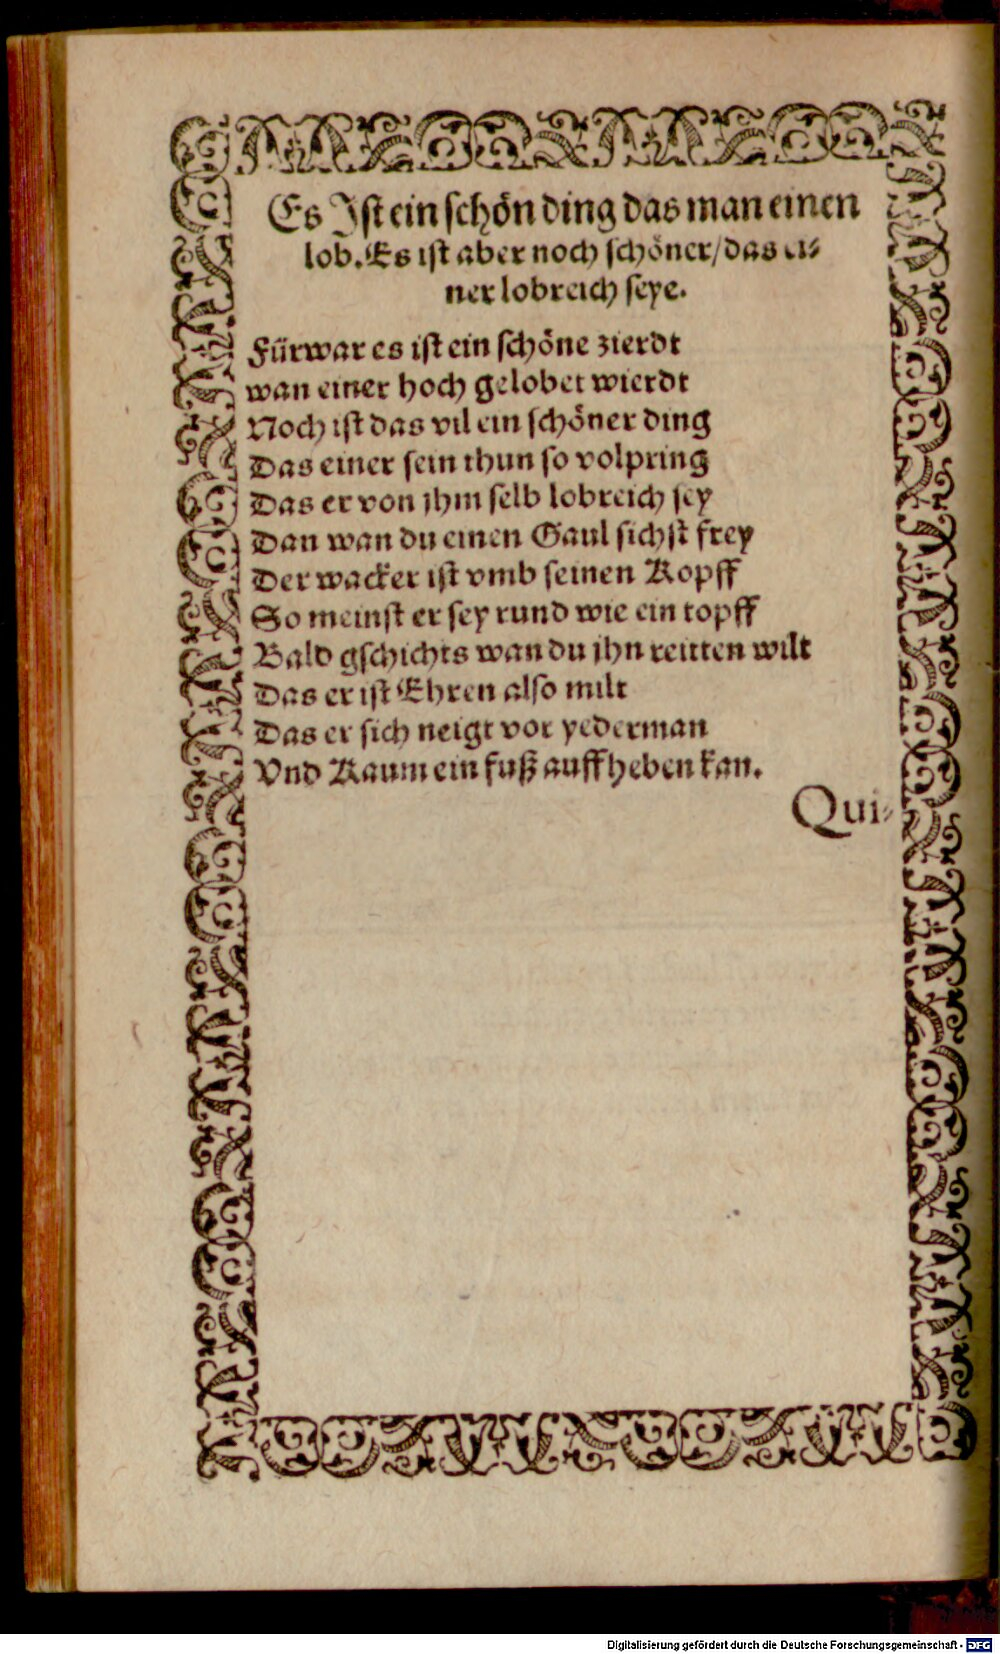 Es Ist ein schön ding das man einen
lob. Es ist aber noch schöner/das ei⸗
ner lobreich seye.
Fürwar es ist ein schöne zierdt
wan einer hoch gelobet wierdt
Noch ist das vil ein schöner ding
Das einer sein thun so volpring
Das er von jhm selb lobreich sey
Dan wan du einen Gaul sichst frey
Der wacker ist vmb seinen Kopff
So meinst er sey rund wie ein topff
Bald gschichts wan du jhn reitten wilt
Das er ist Ehren also milt
Das er sich neigt vor yederman
Vnd Kaum ein fuß auffheben kan.
Qui⸗
Digitalisierung gefördert durch die Deutsche Forschungsgemeinschaft - DFG